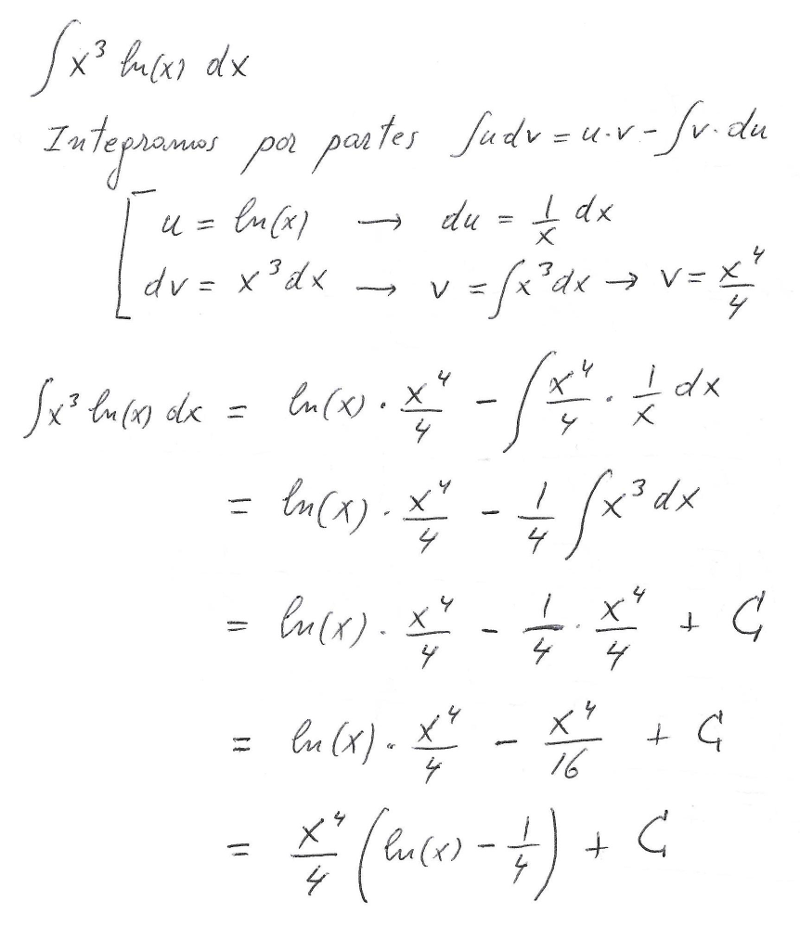 ∫x³ ln(x) dx
Integramos por partes ∫u dv = u·v - ∫v·du
u = ln(x) → du = 1/x dx
dv = x³ dx → v = ∫x³ dx → v = x⁴/4
∫x³ ln(x) dx = ln(x) · x⁴/4 - ∫ x⁴/4 · 1/x dx
= ln(x) · x⁴/4 - 1/4 ∫x³ dx
= ln(x) · x⁴/4 - 1/4 · x⁴/4 + C
= ln(x) · x⁴/4 - x⁴/16 + C
= x⁴/4 (ln(x) - 1/4) + C